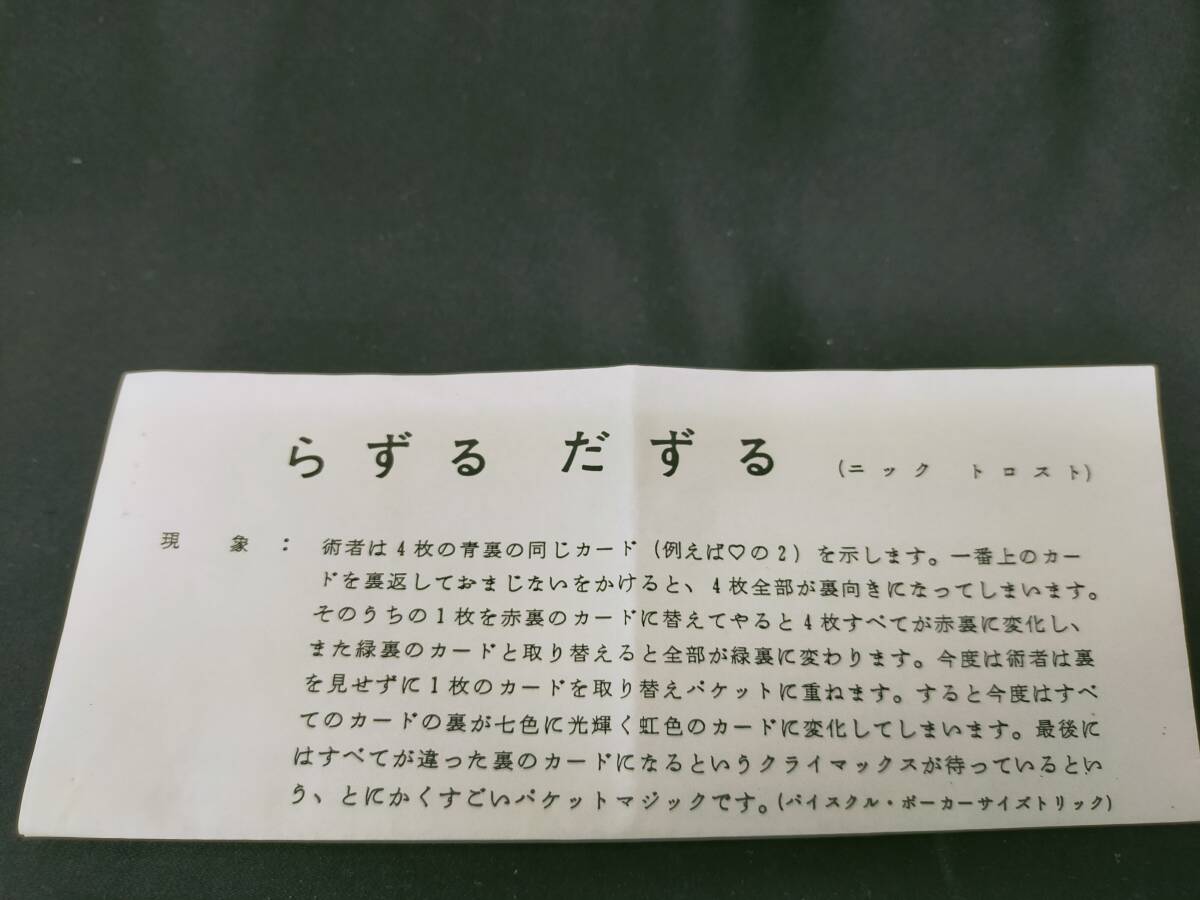 らずる だずる (ニック トロスト)
現象： 術者は4枚の青裏の同じカード（例えば♡の2）を示します。一番上のカー
ドを裏返しておまじないをかけると、4枚全部が裏向きになってしまいます。
そのうちの1枚を赤裏のカードに替えてやると4枚すべてが赤裏に変化し、
また緑裏のカードと取り替えると全部が緑裏に変わります。今度は術者は裏
を見せずに1枚のカードを取り替えパケットに重ねます。すると今度はすべ
てのカードの裏が七色に光輝く虹色のカードに変化してしまいます。最後に
はすべてが違った裏のカードになるというクライマックスが待っているとい
う、とにかくすごいパケットマジックです。(バイスクル・ポーカーサイズトリック)